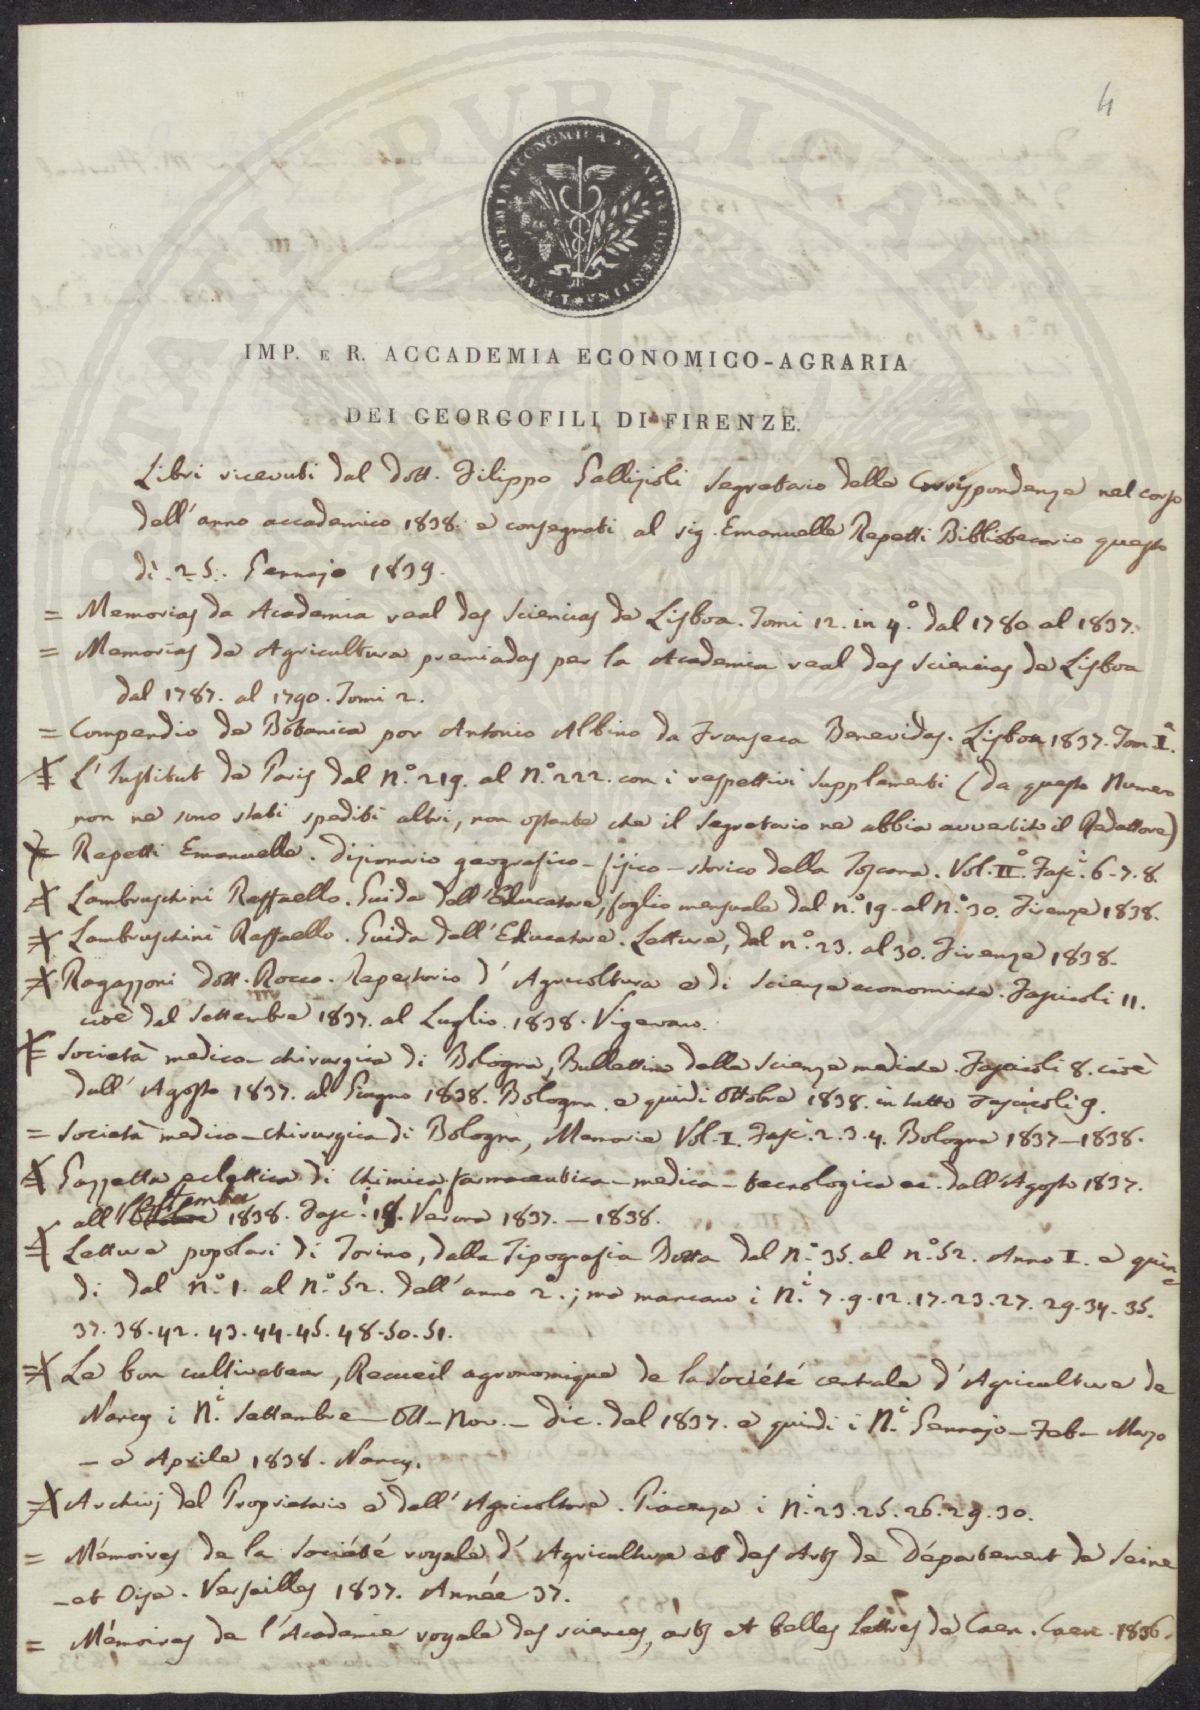 4
I. E R. ACCADEMIA ECONOMICO AGRARIA FIORENTINA
IMP. E R. ACCADEMIA ECONOMICO-AGRARIA
DEI GEORGOFILI DI FIRENZE.
Libri ricevuti dal dott. Filippo Gallizioli Segretario delle Corrispondenze nel corso
dell'anno accademico 1838. e consegnati al sig. Emanuelle Repetti Bibliotecario questo
dì 25. Gennajo 1839.
= Memorias da Academia real das Sciencias de Lisboa. Tomi 12. in 4.° dal 1780 al 1837.
= Memorias de Agricultura premiadas per la Academia real das Sciencias de Lisboa
dal 1787. al 1790. Tomi 2.
= Compendio de Botanica por Antonio Albino da Franseca Benevidas. Lisboa 1837. Tom. I.°
= L'Institut de Paris dal N.° 219. al N.° 222. con i respettivi supplementi (da questo Numero
non ne sono stati spediti altri, non ostante che il Segretario ne abbia avvertito il Redattore)
= Repetti Emanuelle. Dizionario geografico-fisico-storico della Toscana. Vol. II.° Fasc.i 6-7-8.
= Lambruschini Raffaello. Guida dell'Educatore, foglio mensuale dal n.° 19. al N.° 30. Firenze 1838.
= Lambruschini Raffaello. Guida dell'Educatore. Letture, dal n.° 23. al 30. Firenze 1838.
= Ragazzoni dott. Rocco. Repertorio d'Agricoltura e di Scienze economiche. Fascicoli 11.
cioè dal Settembre 1837. al Luglio. 1838. Vigevano.
= Società medico-chirurgica di Bologna, Bullettino delle Scienze mediche. Fascicoli 8. cioè
dall'Agosto 1837. al Giugno 1838. Bologna. e quindi Ottobre 1838. in tutto Fascicoli 9.
= Società medico-chirurgica di Bologna, Memorie Vol. I. Fasc.i 2. 3. 4. Bologna 1837-1838.
= Gazzetta eclettica di Chimica farmaceutica-medica-tecnologica ec. dall'Agosto 1837.
all'Ottobre 1838. Fasc.i Verona 1837.-1838.
= Letture popolari di Torino, dalla Tipografia Botta dal N.° 35. al n.° 52. Anno I. e quin
di dal N.° 1. al N.° 52. dell'anno 2.°; ma mancano i N.i 7. 9. 12. 17. 23. 27. 29. 34. 35.
37. 38. 42. 43. 44. 45. 48. 50. 51.
= Le bon cultivateur, Recueil agronomique de la Société centrale d'Agriculture de
Nancy i N.i Settembre-Ott-Nov.-Dic. del 1837. e quindi i N.i Gennajo-Feb-Marzo
- e Aprile 1838. Nancy.
= Archivj del Proprietario e dell'Agricoltore. Piacenza i N.i 23. 25. 26. 29. 30.
= Mémoires de la Société royale d'Agriculture et des Arts de Département de Seine
-et Oise. Versailles 1837. Année 37.
= Mémoires de l'Academie royale des sciences, arts et belles Lettres de Caen. Caen. 1836.